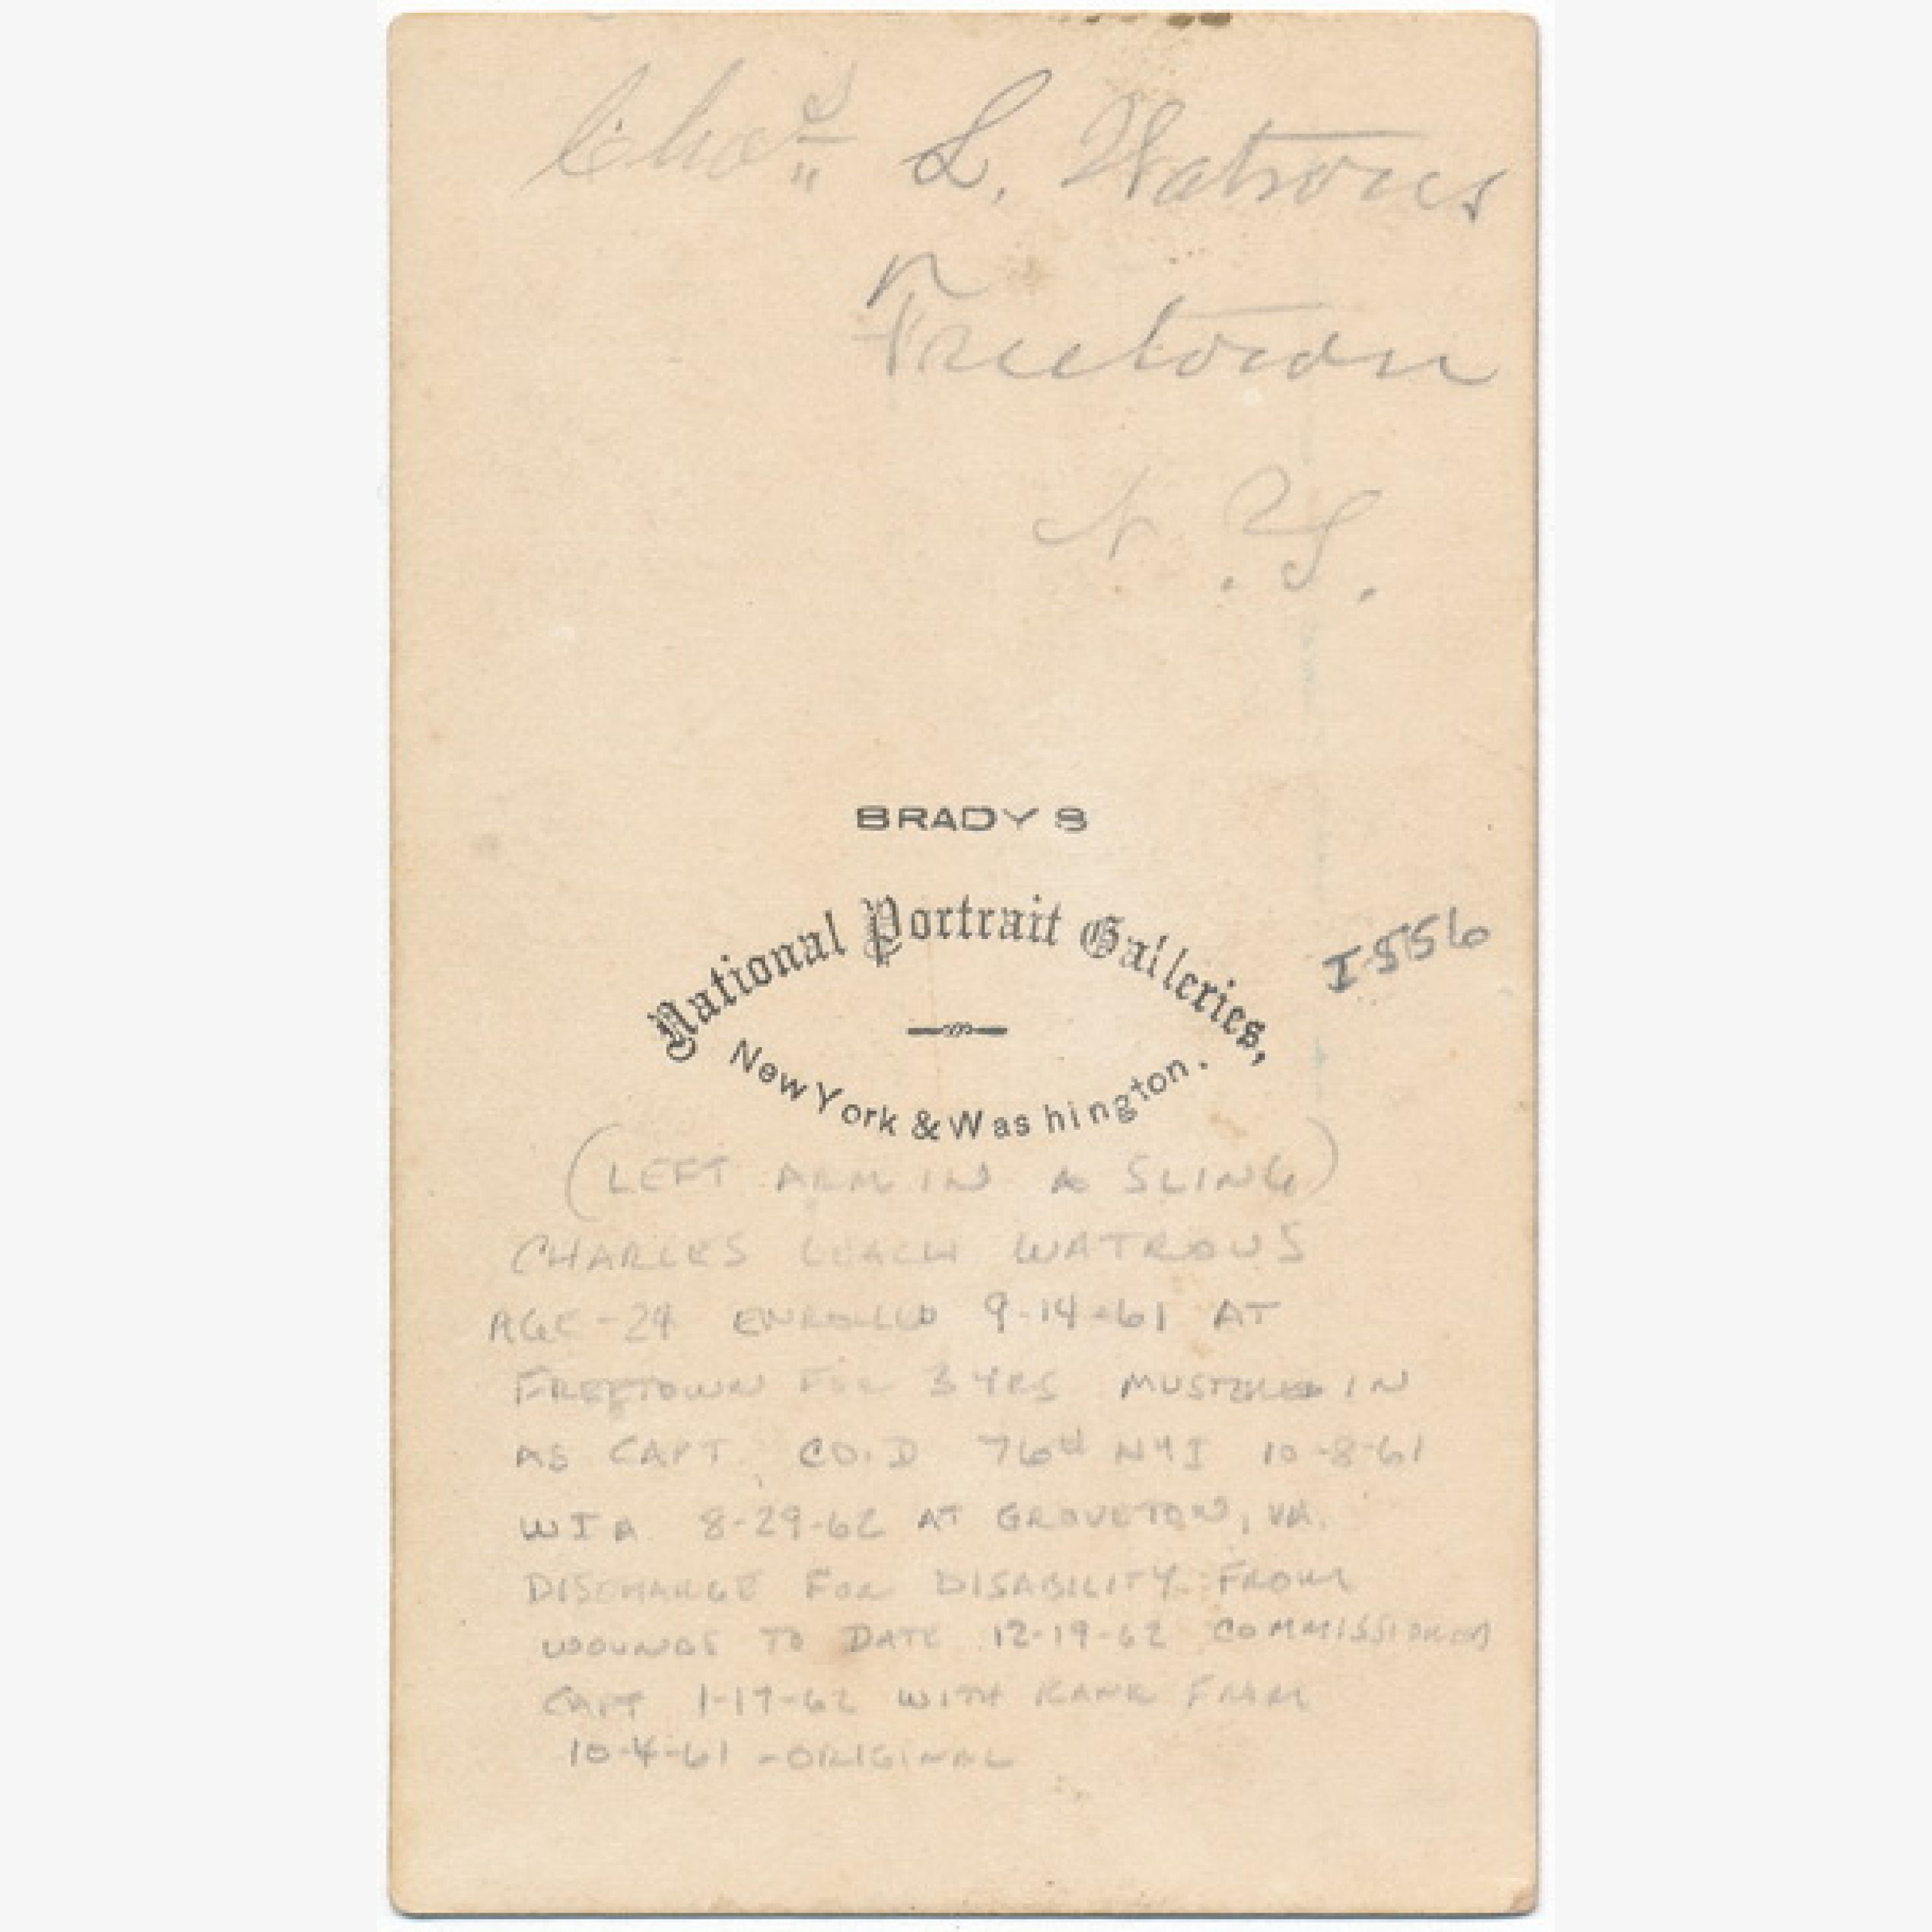 Chas. L. Watrous
Freetown
N. Y.
BRADYS
National Portrait Galleries,
I-556
New York & Washington.
(LEFT ARM IN A SLING)
CHARLES LEACH WATROUS
AGE - 24 ENROLLED 9-14-61 AT
FREETOWN FOR 3 YRS MUSTERED IN
AS CAPT. CO. D 76th NYI 10-8-61
WIA 8-29-62 AT GROVETON, VA.
DISCHARGE FOR DISABILITY FROM
WOUNDS TO DATE 12-19-62 COMMISSIONED
CAPT 1-17-62 WITH RANK FROM
10-4-61 - ORIGINAL